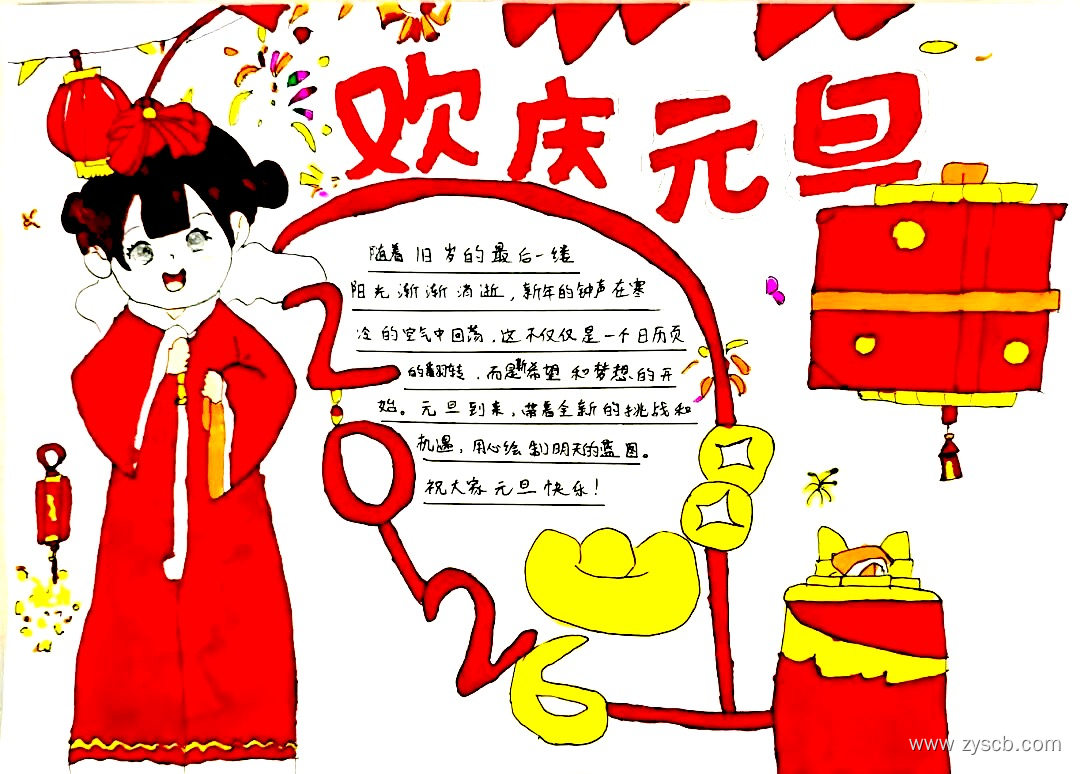 欢庆元旦
随着旧岁的最后一缕
阳光渐渐消逝，新年的钟声在寒
冷的空气中回荡，这不仅仅是一个日历页
的翻转，而是新希望和梦想的开
始。元旦到来，带着全新的挑战和
机遇，用心绘制明天的蓝图。
祝大家元旦快乐！
2026
www.zyscb.com